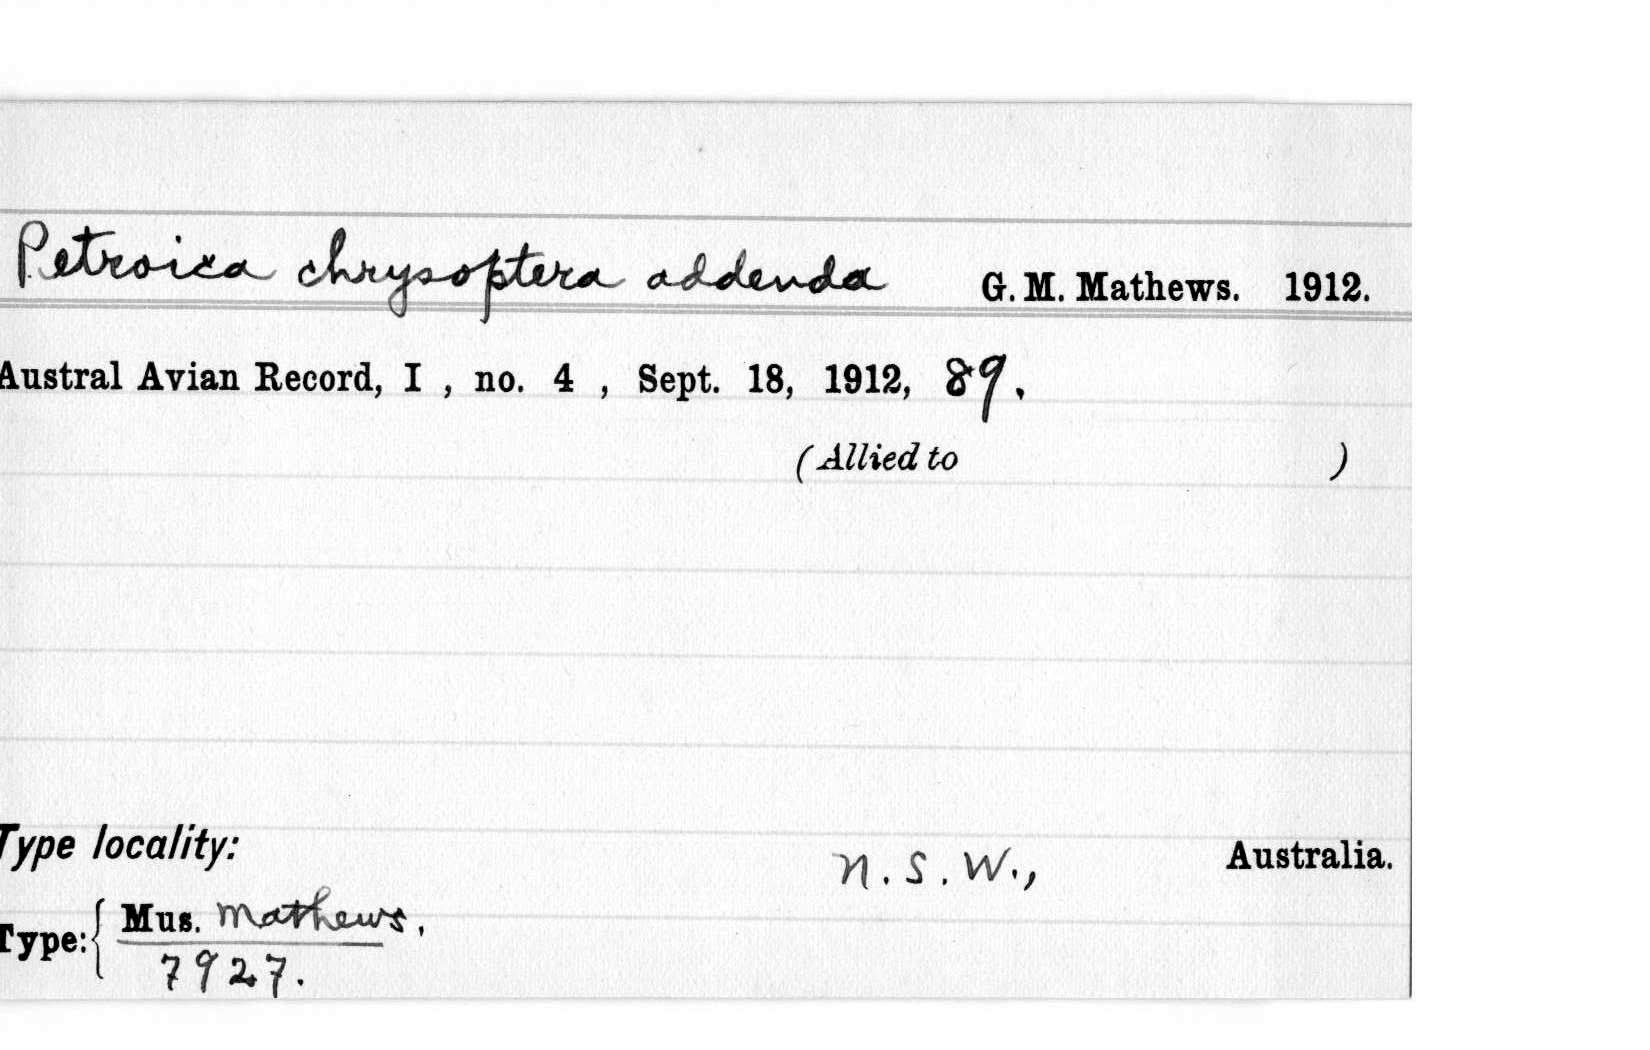 Petroica chrysoptera addenda G. M. Mathews. 1912.
Austral Avian Record, I , no. 4 , Sept. 18, 1912, 89.
(Allied to )
Type locality: N.S.W., Australia.
Type: { Mus. Mathews.
7927.